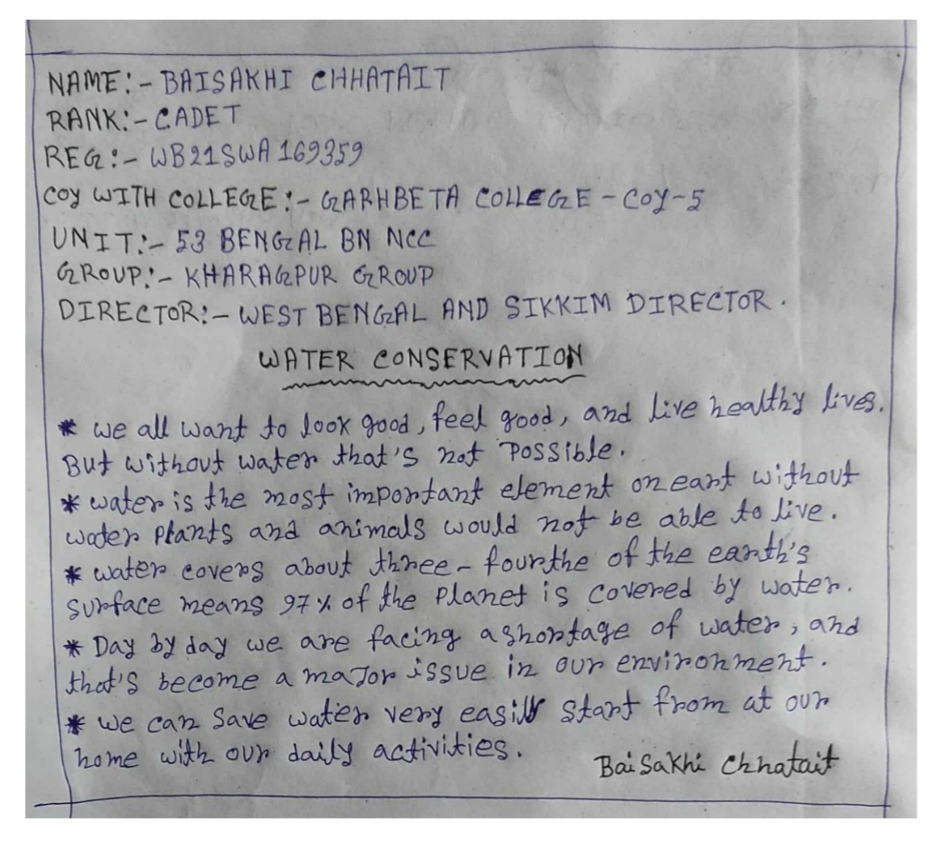 NAME:- BAISAKHI CHHATAIT
RANK:- CADET
REG:- WB21SWA169359
COY WITH COLLEGE:- GARHBETA COLLEGE - COY-5
UNIT:- 53 BENGAL BN NCC
GROUP:- KHARAGPUR GROUP
DIRECTOR:- WEST BENGAL AND SIKKIM DIRECTOR.
WATER CONSERVATION
* we all want to look good, feel good, and live healthy lives.
But without water that's not possible.
* water is the most important element on eart without
water plants and animals would not be able to live.
* water covers about three-fourthe of the earth's
surface means 97% of the planet is covered by water.
* Day by day we are facing a shortage of water, and
that's become a major issue in our environment.
* we can save water very easily start from at our
home with our daily activities.
Baisakhi Chhatait